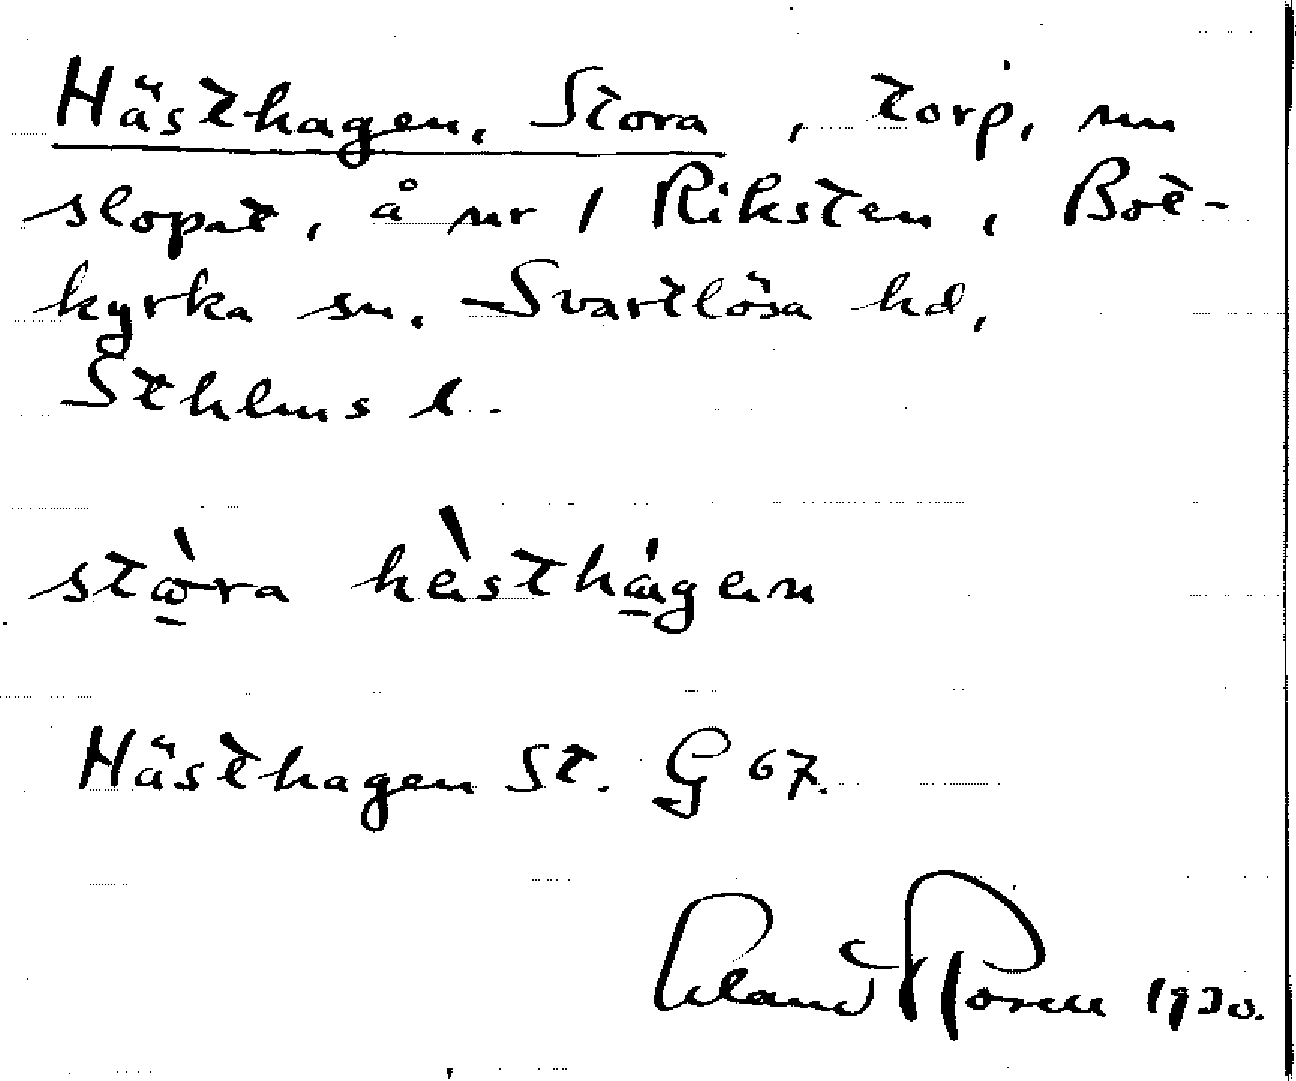 Hästhagen, Stora, torp, nu
slopat, å nr 1 Riksten, Bot-
kyrka sn. Svartlösa hd,
Sthlms l.
stὼ̲ra hästhágen
Hästhagen St. G 67.
Erland Rosell 1930.